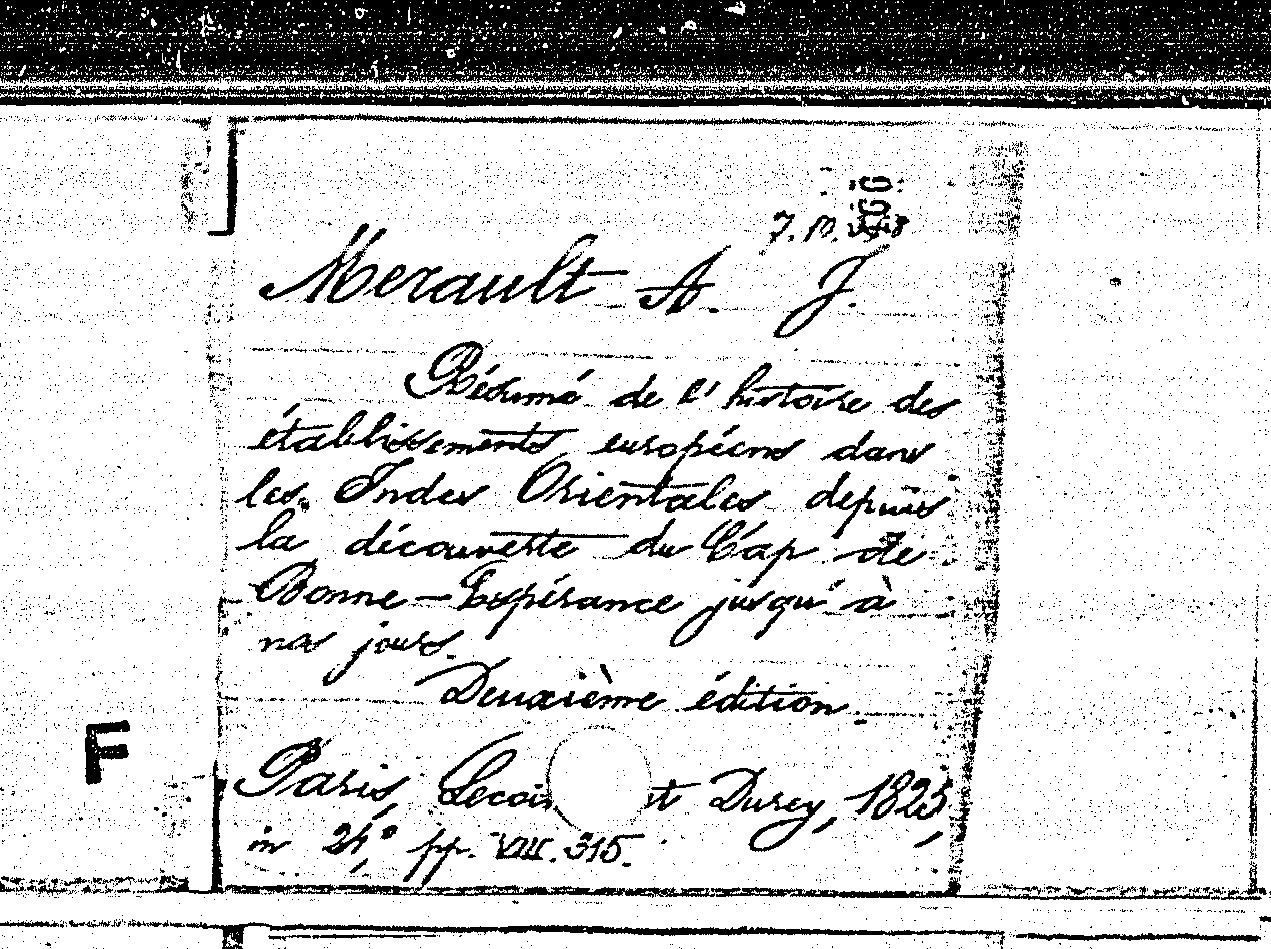 Merault A. J.
Résumé de l'histoire des
établissements européens dans
les Indes Orientales depuis
la découverte du Cap de
Bonne-Espérance jusqu'à
nos jours.
Deuxième édition.
Paris, Durey, 1825,
in 24,° pp. VIII. 315.
F